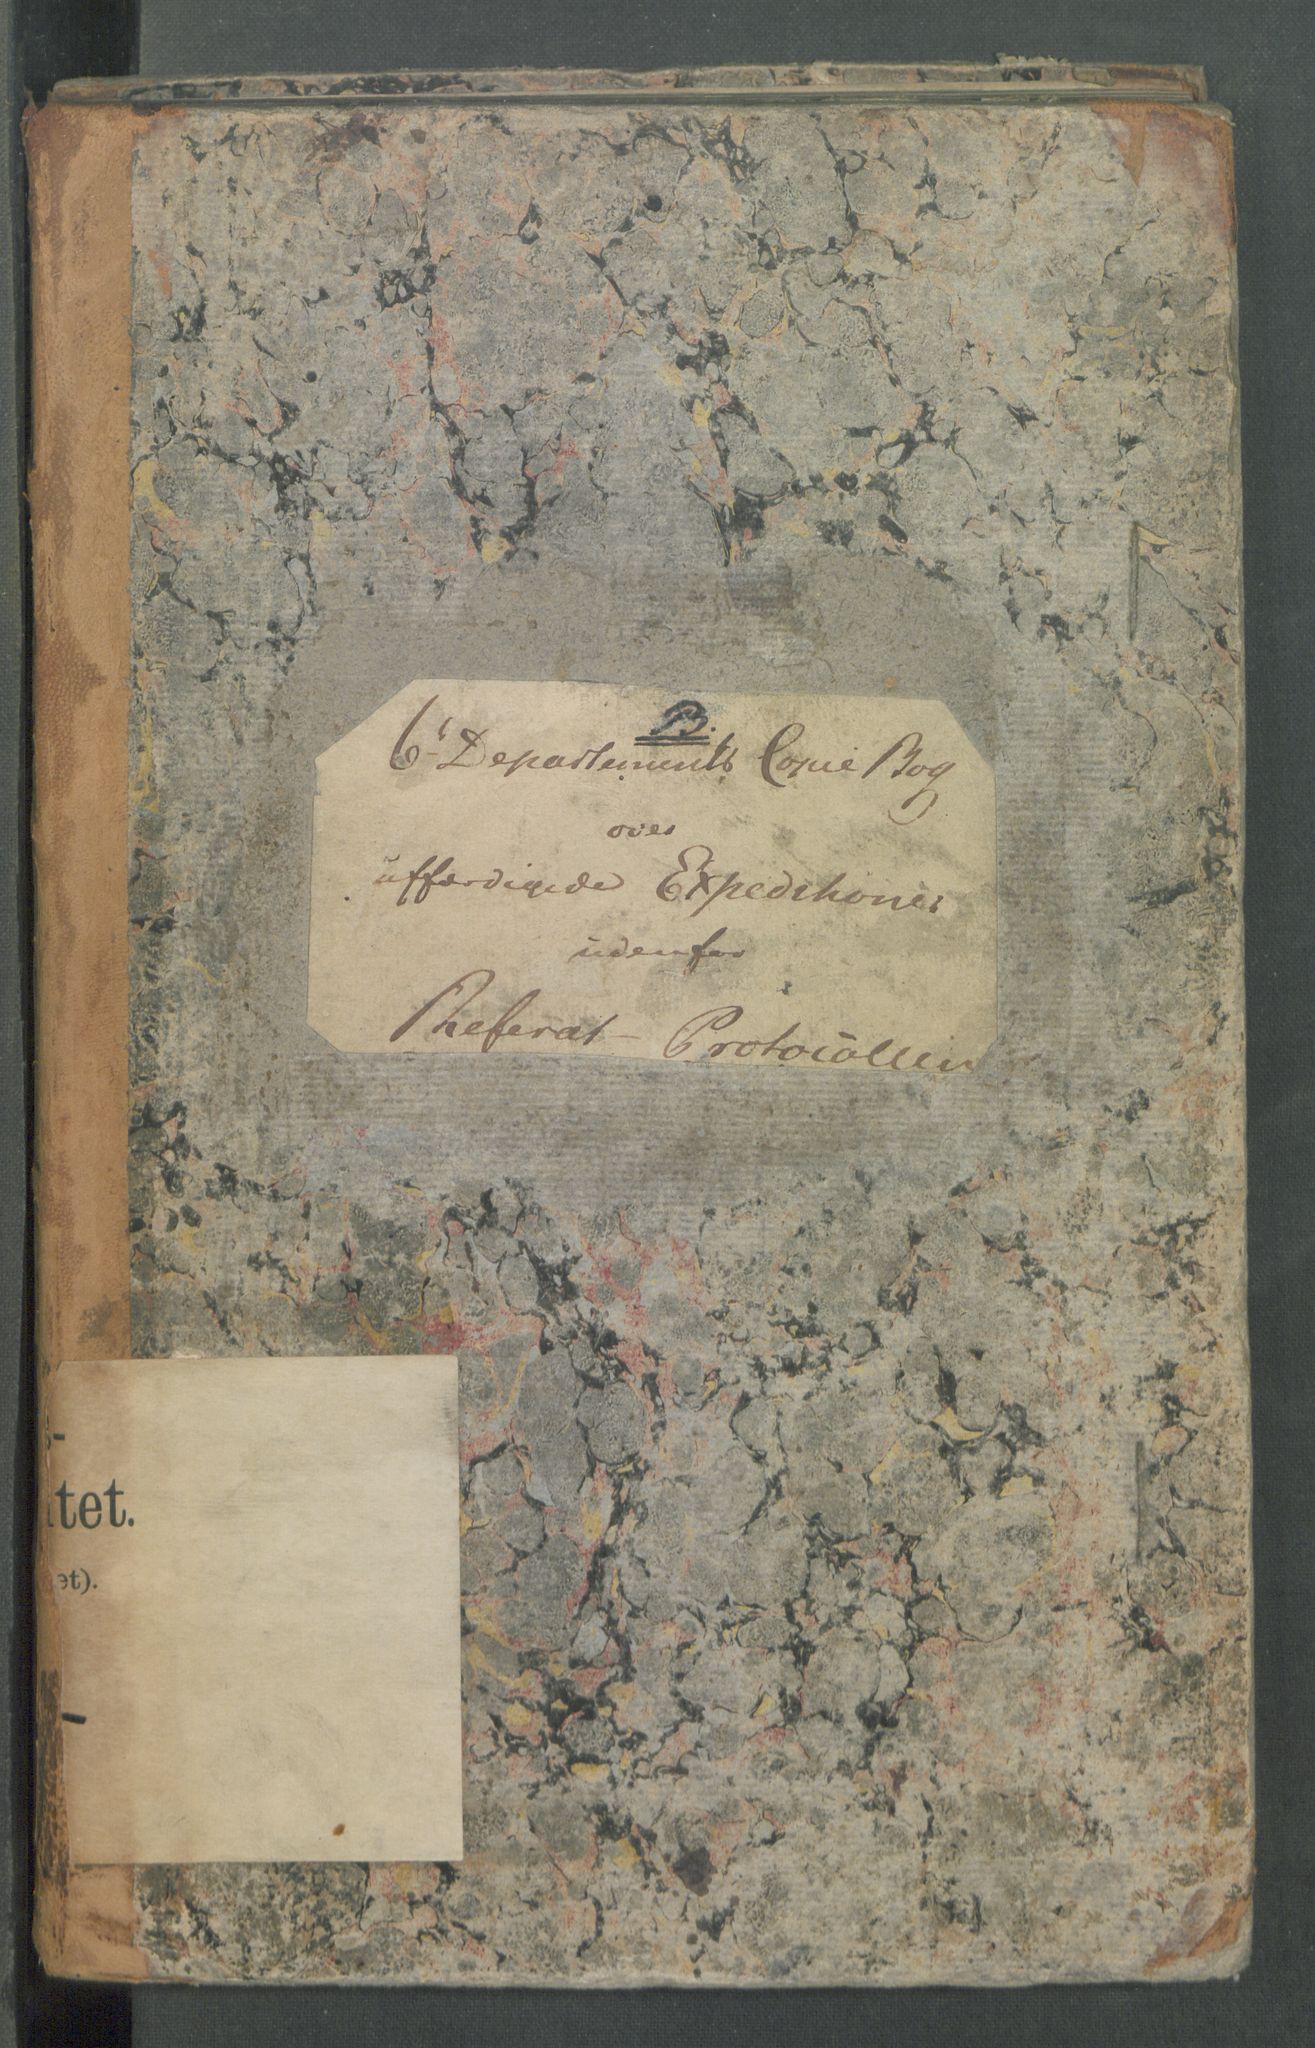 B.
6t Departements Copie Bog
over
uffærdigede Expeditioner
udenfor
Referat-Protocollen
s-
itet.
et).
-